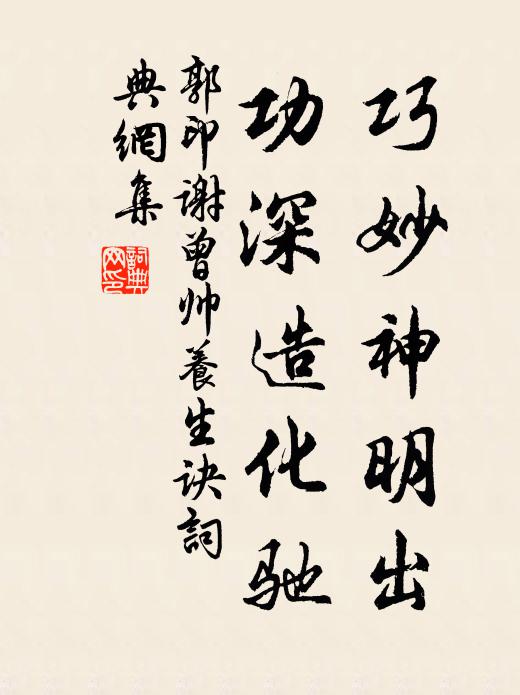 巧妙神明出
功深造化驰
郭印谢曾帅養生诀詞
典網集
詞典網印